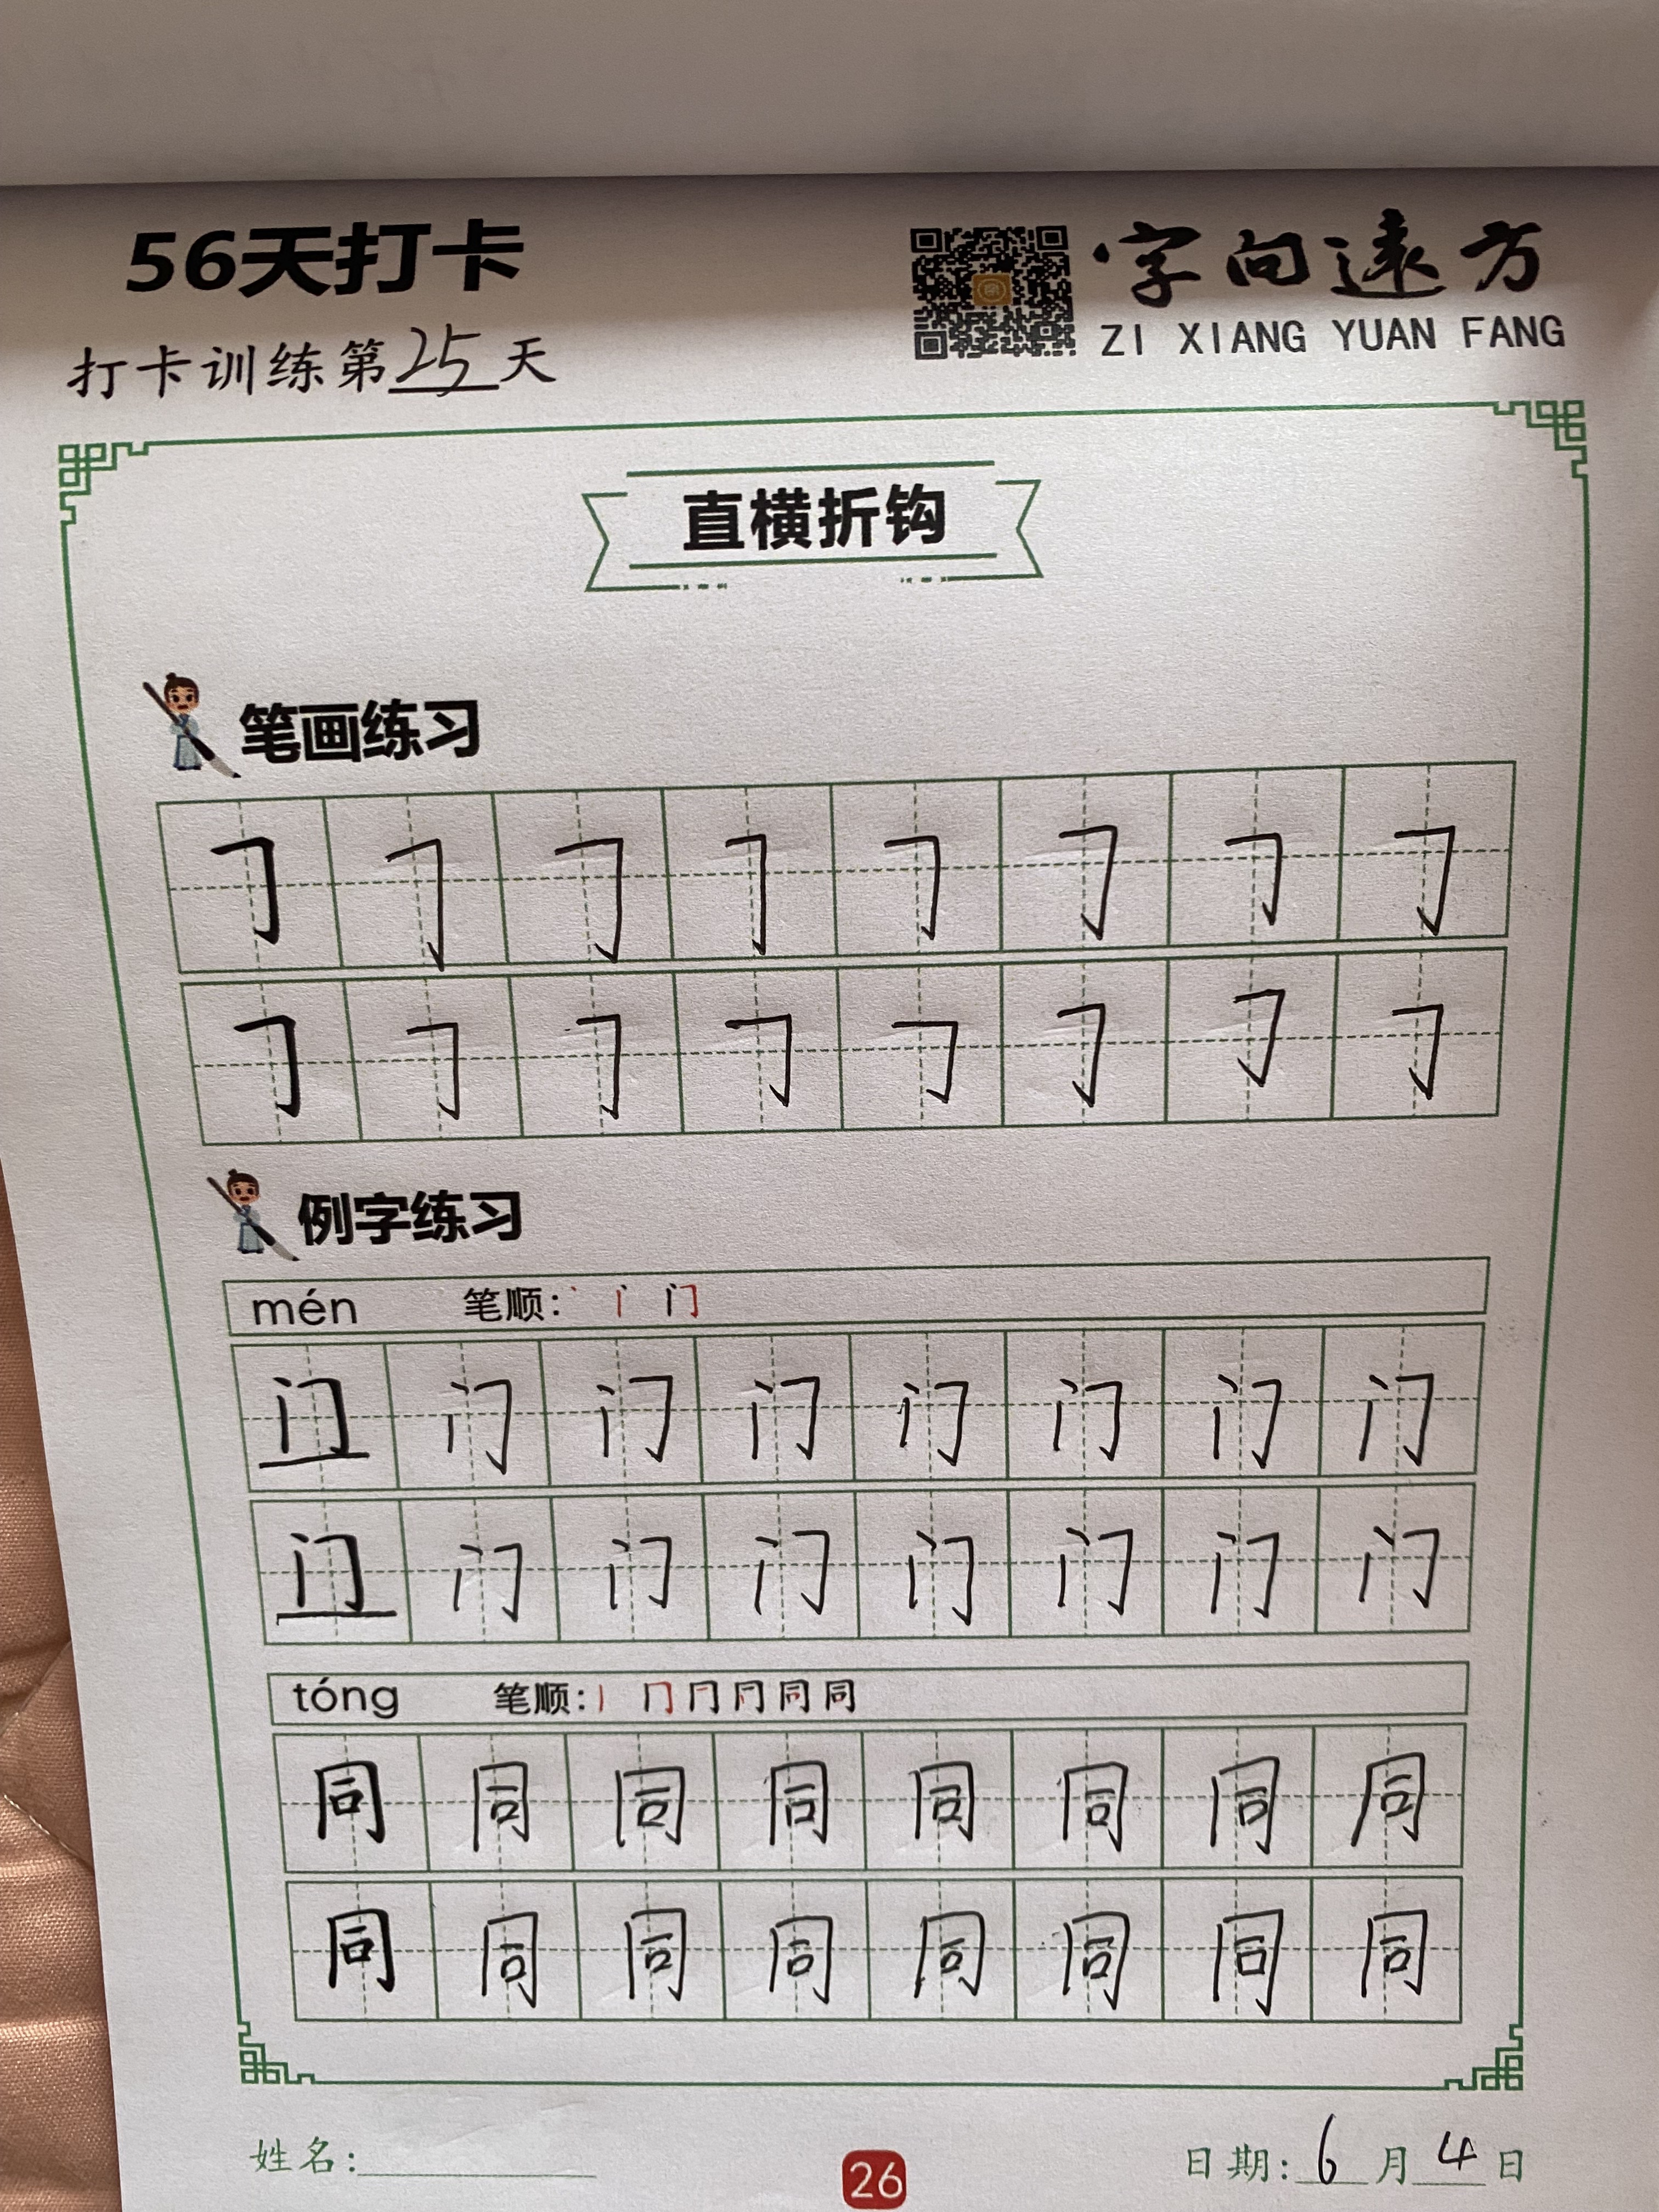 56天打卡
字向遠方
ZI XIANG YUAN FANG
打卡训练第25天
直横折钩
笔画练习
𠃌 𠃌 𠃌 𠃌 𠃌 𠃌 𠃌 𠃌
𠃌 𠃌 𠃌 𠃌 𠃌 𠃌 𠃌 𠃌
例字练习
mén 笔顺: 丶 门
门 门 门 门 门 门 门 门
门 门 门 门 门 门 门 门
tóng 笔顺: 丨 冂 同 同
同 同 同 同 同 同 同 同
同 同 同 同 同 同 同 同
姓名:
26
日期: 6月4日